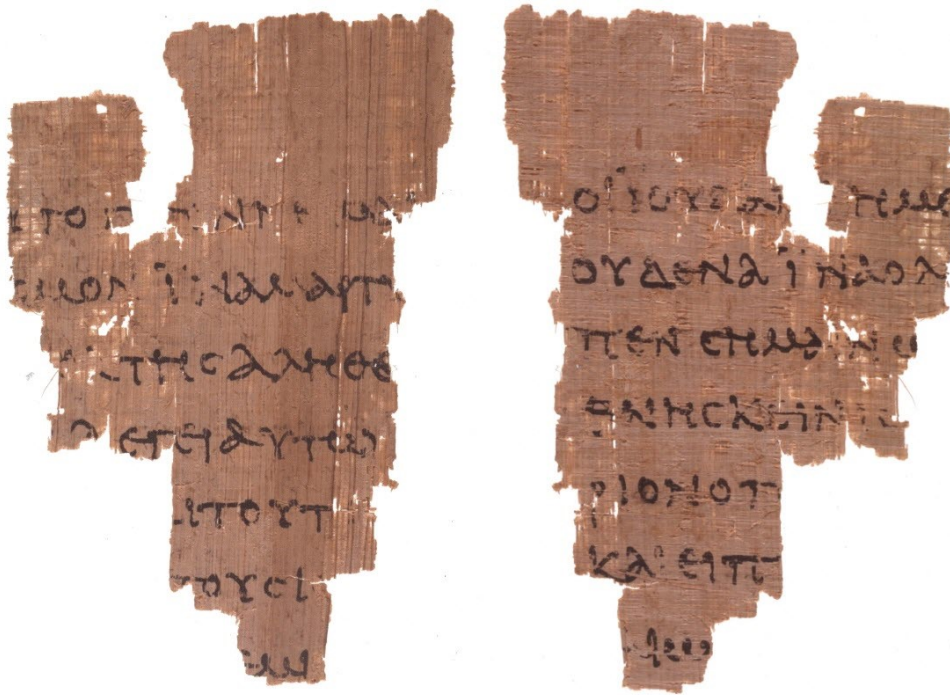 ΤΟ Γ
ϹΜΟΝ ΪΝΑ ΜΑΡΤΥ
ΤΗϹ ΑΛΗΘΕ
ΛΕΓΕΙ ΑΥΤΩ
ΑΙ ΤΟΥΤ
ΤΟΥϹ Ι
ΜΙ
ΟΙ ΪΟΥΔΑΙ ΗΜΕ
ΟΥΔΕΝΑ ΪΝΑ Ο Λ
ΠΕΝ ϹΗΜΑΙΝΩ
ΘΝΗϹΚΕΙΝ ΙϹ
ΡΙΟΝ Ο Π
ΚΑΙ ΕΙΠ
ΑΙΩ